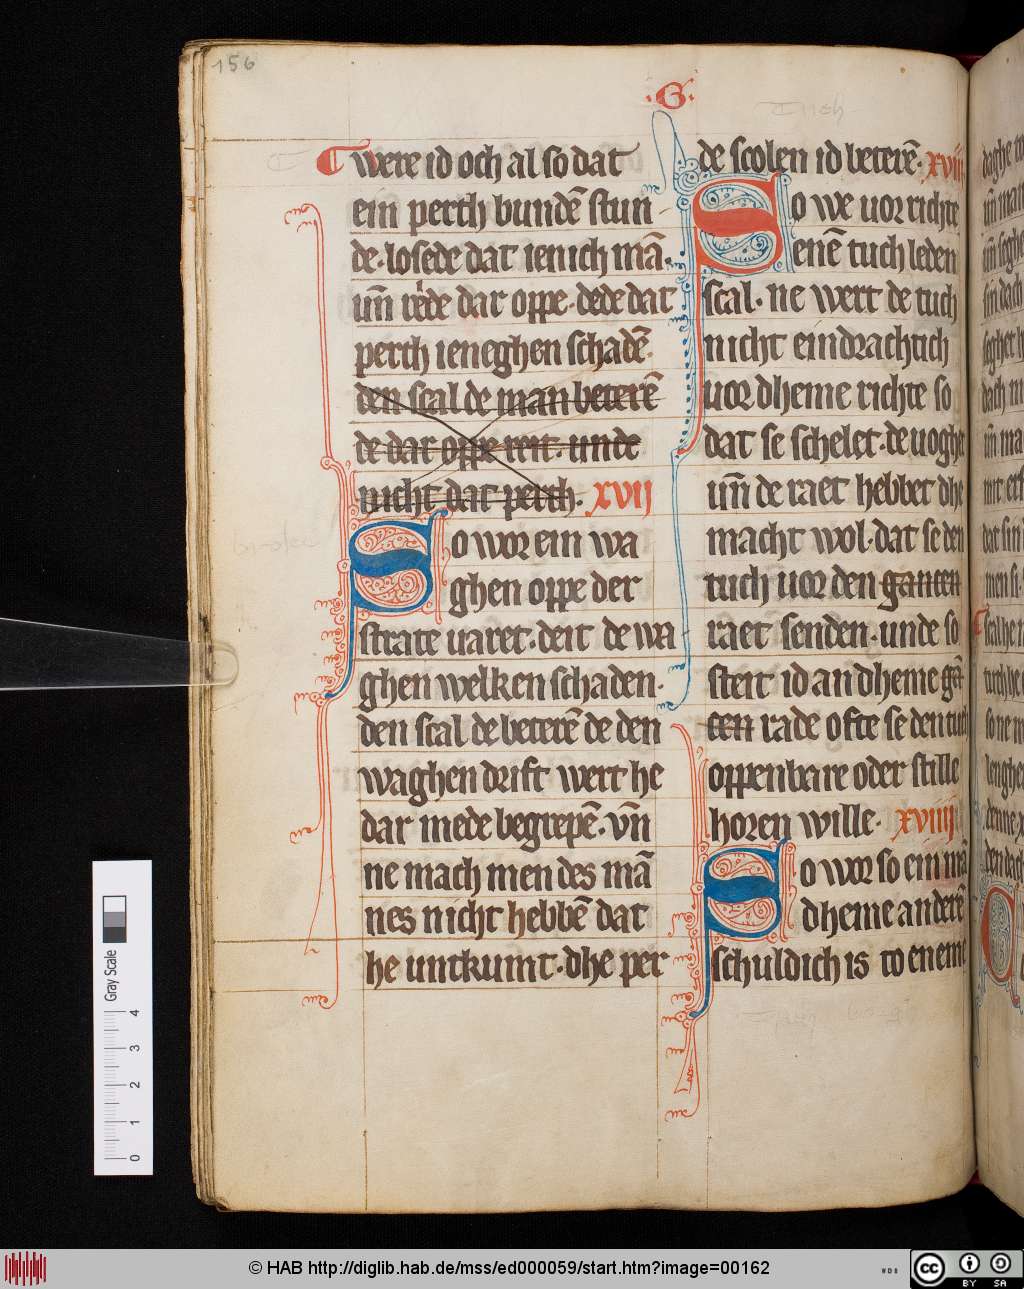 156
·G·
were id och al so dat
ein perth bundē stun
de· losede dat ienich mā·
un̄ rede dar oppe· dede dat
perth ieneghen schadē·
den scal de man beterē
de dar oppe reit· unde
nicht dat perth· xvij
So wor ein wa
ghen oppe der
strate varet· deit de wa
ghen welken schaden·
den scal de beterē de den
waghen drift wert he
dar mede begrepē· vn̄
ne mach men des mā
nes nicht hebbē dat
he untkumt· dhe per
de scolen id beterē· xviij
So we uor richte
enē tuch leden
scal· ne wert de tuch
nicht eindrachtich
uor dheme richte so
dat se schelet· de uoghet
un̄ de raet hebbet dhe
macht wol· dat se den
tuch uor den ganten
raet senden· unde so
steit id an dheme gā
ten rade ofte se den tuch
oppenbare oder stille
horen wille· xviiij
So wor so ein mā
dheme anderē
schuldich is to eneme
Gray Scale
4
3
2
1
0
© HAB http://diglib.hab.de/mss/ed000059/start.htm?image=00162
WDB
cc BY SA